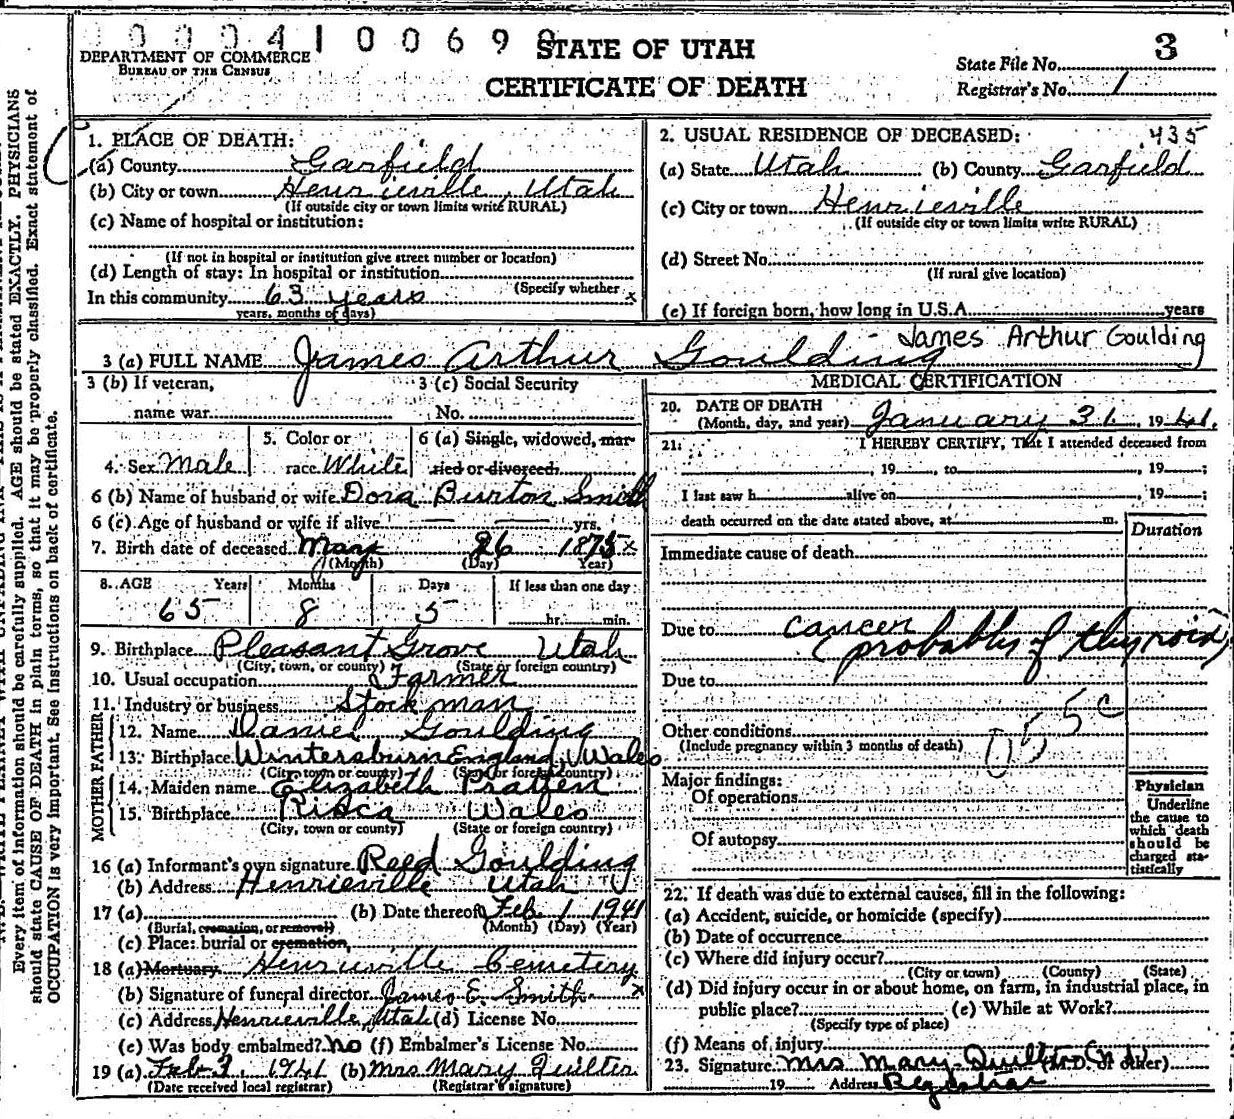 0004100690
DEPARTMENT OF COMMERCE
BUREAU OF THE CENSUS
STATE OF UTAH
CERTIFICATE OF DEATH
State File No. 3
Registrar's No. 1
Every item of information should be carefully supplied. AGE should be stated EXACTLY. PHYSICIANS
should state CAUSE OF DEATH in plain terms, so that it may be properly classified. Exact statement of
OCCUPATION is very important. See instructions on back of certificate.
1. PLACE OF DEATH:
(a) County Garfield
(b) City or town Henrieville, Utah
(If outside city or town limits write RURAL)
(c) Name of hospital or institution:
(If not in hospital or institution give street number or location)
(d) Length of stay: In hospital or institution
(Specify whether
In this community 63 years x
years, months of days)
2. USUAL RESIDENCE OF DECEASED: 435
(a) State Utah (b) County Garfield
(c) City or town Henrieville
(If outside city or town limits write RURAL)
(d) Street No.
(If rural give location)
(e) If foreign born, how long in U.S.A. years
3 (a) FULL NAME James Arthur Goulding James Arthur Goulding
3 (b) If veteran,
name war
3 (c) Social Security
No.
4. Sex Male
5. Color or
race White
6 (a) Single, widowed, mar-
ried or divorced
6 (b) Name of husband or wife Dora Burton Smith
6 (c) Age of husband or wife if alive yrs.
7. Birth date of deceased May 26 1875 x
(Month) (Day) Year)
8. AGE Years Months Days If less than one day
65 8 5 hr. min.
9. Birthplace Pleasant Grove Utah
(City, town, or county) (State or foreign country)
10. Usual occupation Farmer
11. Industry or business Stock man
FATHER
12. Name Daniel Goulding
13. Birthplace Wintersburn England, Wales
(City, town or county) (State or foreign country)
MOTHER
14. Maiden name Elizabeth Pratten
15. Birthplace Risca Wales
(City, town or county) (State or foreign country)
16 (a) Informant's own signature Reed Goulding
(b) Address Henrieville Utah
17 (a) (b) Date thereof Feb. 1 1941
(Burial, cremation, or removal) (Month) (Day) (Year)
(c) Place: burial or cremation,
18 (a) Mortuary Henrieville Cemetery
(b) Signature of funeral director James E. Smith x
(c) Address Henrieville, Utah (d) License No.
(e) Was body embalmed? No (f) Embalmer's License No.
19 (a) Feb 3, 1941 (b) Mrs Mary Quilter
(Date received local registrar) (Registrar's signature)
MEDICAL CERTIFICATION
20. DATE OF DEATH
(Month, day, and year) January 31, 1941.
21. I HEREBY CERTIFY, That I attended deceased from
, 19 , to , 19 ;
I last saw h alive on , 19 ;
death occurred on the date stated above, at m.
Duration
Immediate cause of death
Due to cancer
(probably of thyroid)
Due to
055c
Other conditions
(Include pregnancy within 3 months of death)
Major findings:
Of operations
Of autopsy
Physician
Underline
the cause to
which death
should be
charged sta-
tistically
22. If death was due to external causes, fill in the following:
(a) Accident, suicide, or homicide (specify)
(b) Date of occurrence
(c) Where did injury occur?
(City or town) (County) (State)
(d) Did injury occur in or about home, on farm, in industrial place, in
public place? (e) While at Work?
(Specify type of place)
(f) Means of injury
23. Signature Mrs Mary Quilter (M.D. or other)
19 Address Registrar